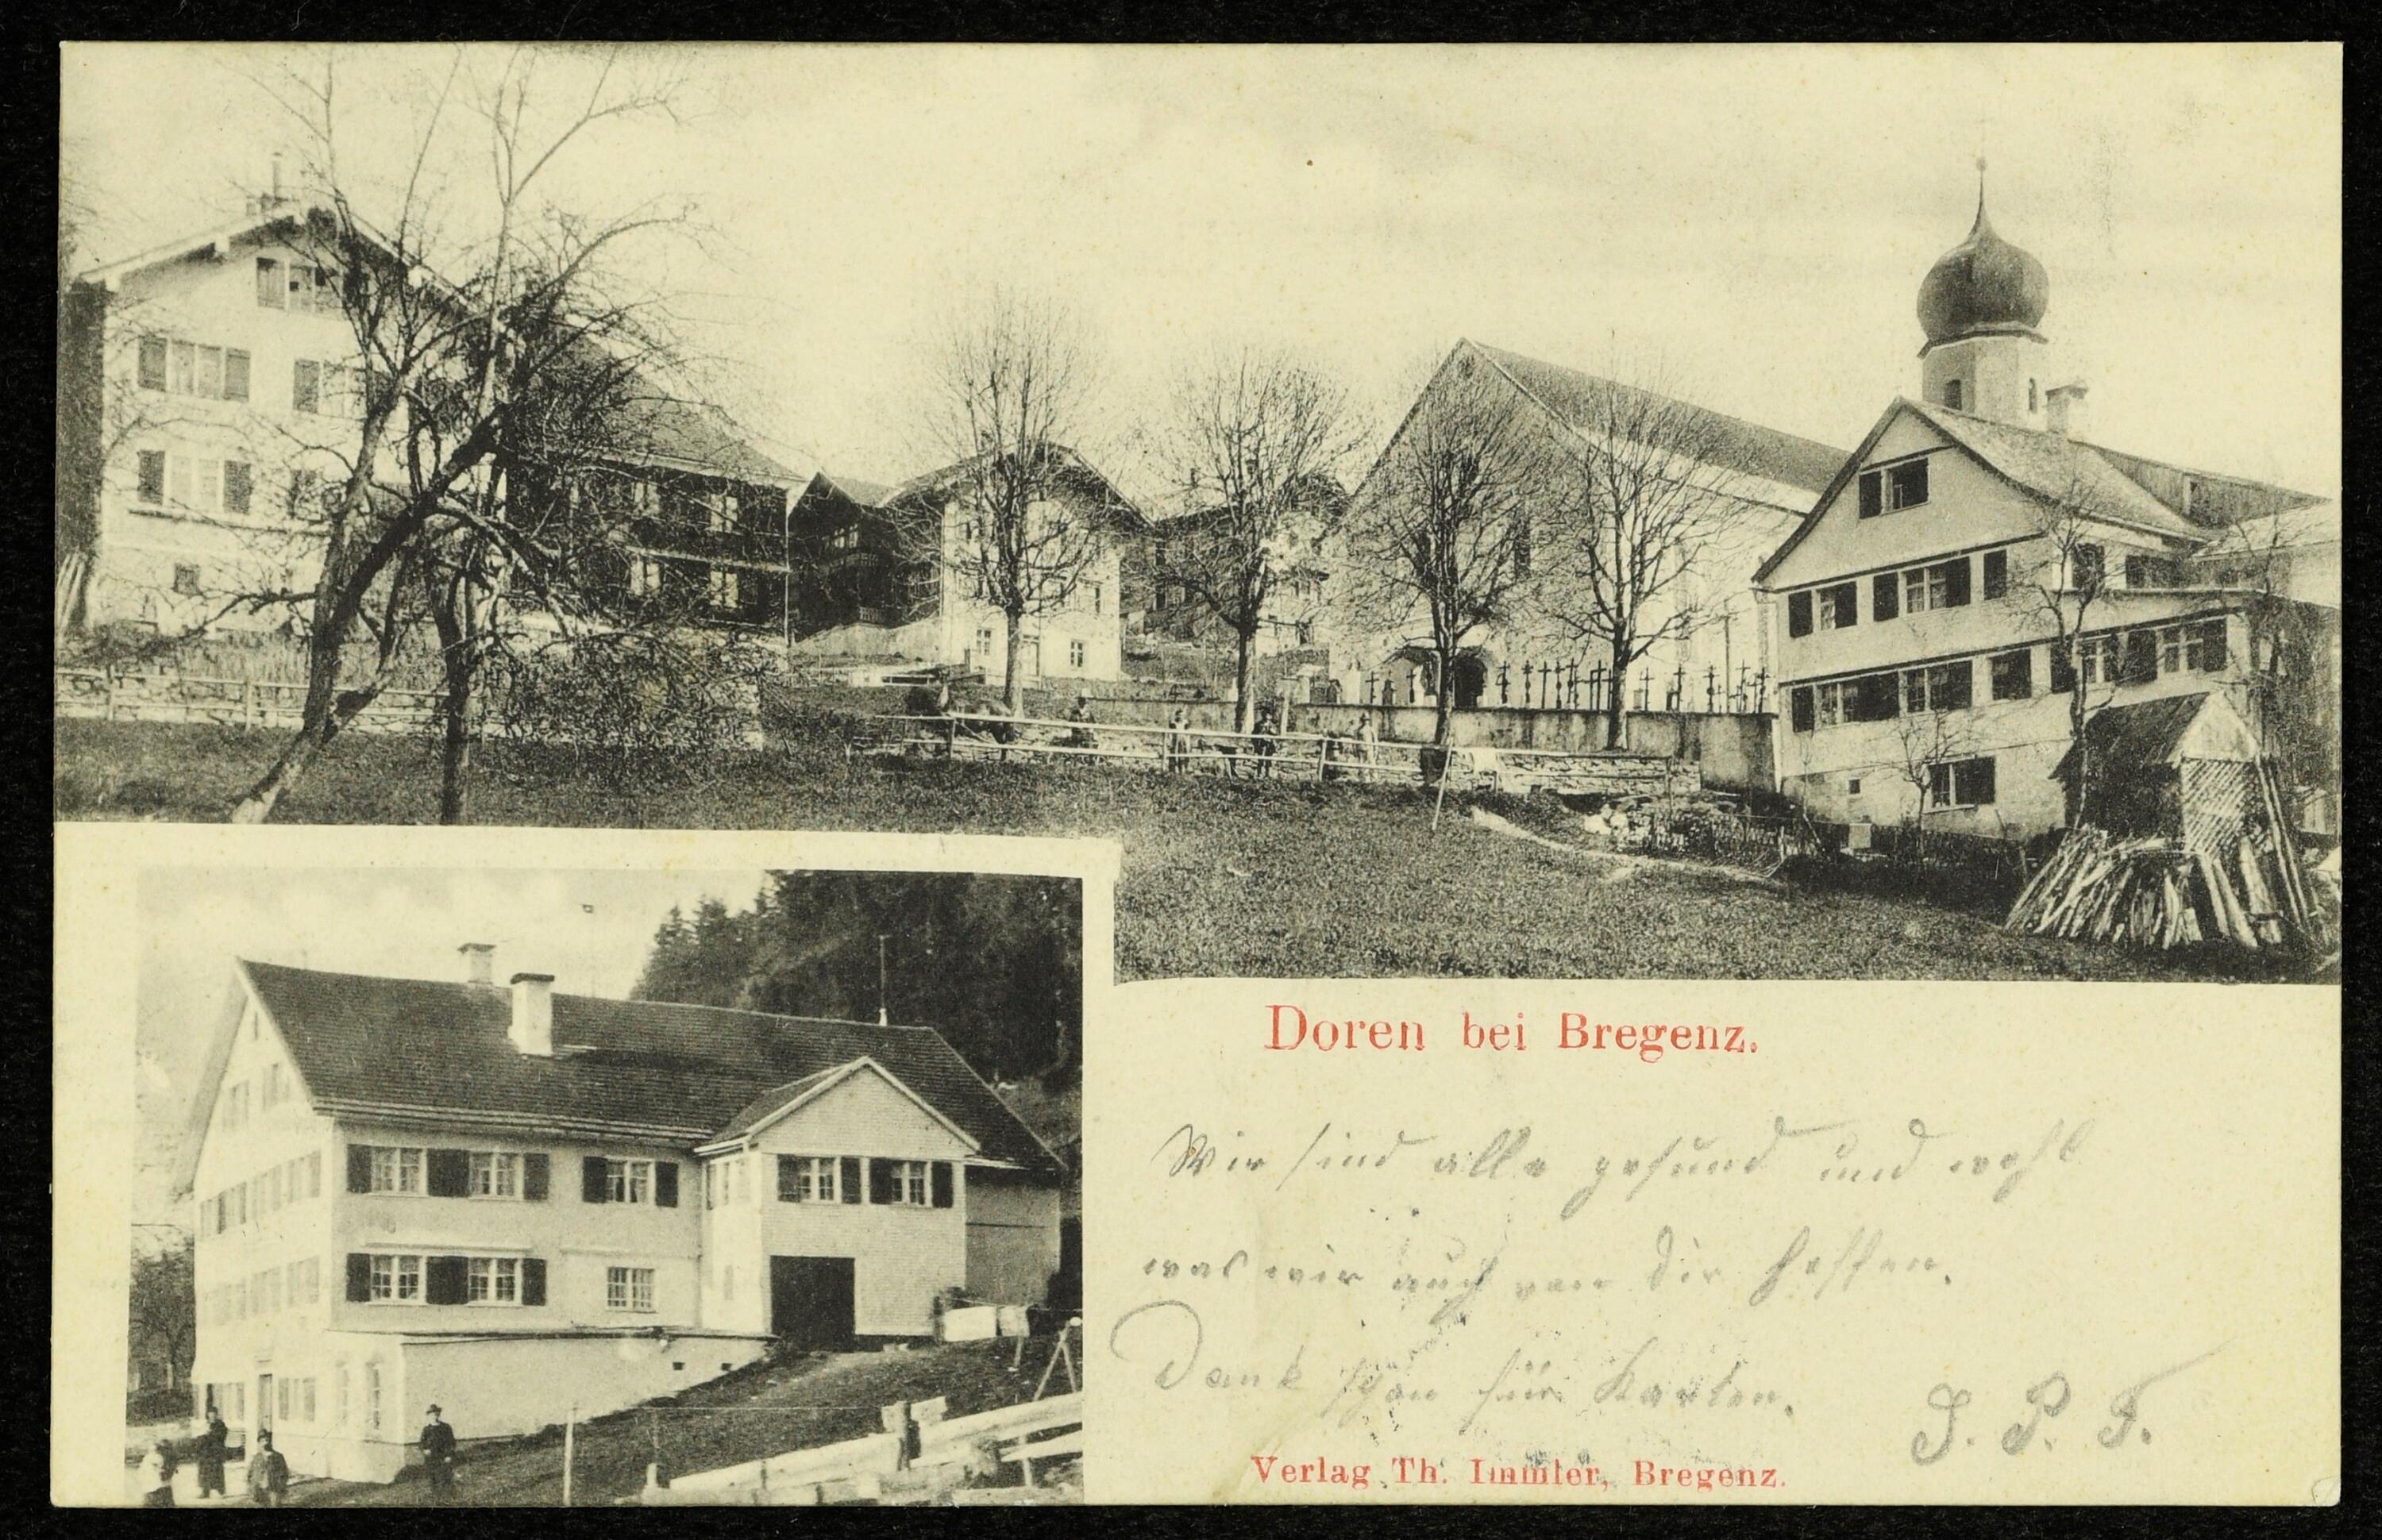 Doren bei Bregenz.
Wir sind alle gesund und wohl
was wir auch von dir hoffen.
Dank schön für Karten.
J. P. F.
Verlag Th. Immler, Bregenz.